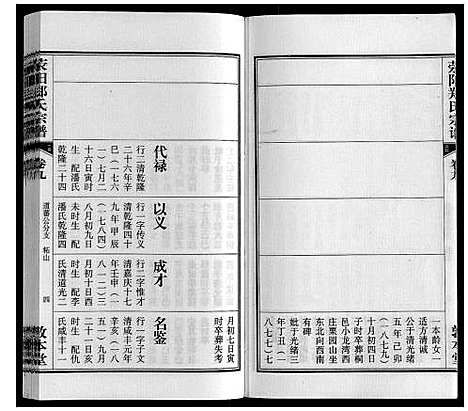 荥阳郑氏宗谱
卷九
敦本堂
一本龄女一
适方清诚
公于清光绪
五年己卯
（一八七九）
十月初九日
子时卒葬桐
邑小龙湾西
庄栗园山坐
东北向西南
有碑
妣于光绪三
年丁丑（一
八七七）七
月初七日寅
时卒葬失考
荥阳郑氏宗谱
卷九
道蕃公分支 柘山
四
敦本堂
代禄
行二清乾隆
二十六年辛
巳（一七六
一）七月二
十六日寅时
生 配潘氏
乾隆二十四
以义
行一字传义
清乾隆四十
九年甲辰
（一七八四）
八月初九日
未时生 配
潘氏乾隆四
成才
行二字惟才
清嘉庆十七
年壬申（一
八一二）三
月初十日酉
时生 配李
氏清道光二
名鉴
行一字子文
清咸丰元年
辛亥（一八
五一）九月
初四日酉时
生 配仇
氏咸丰十一